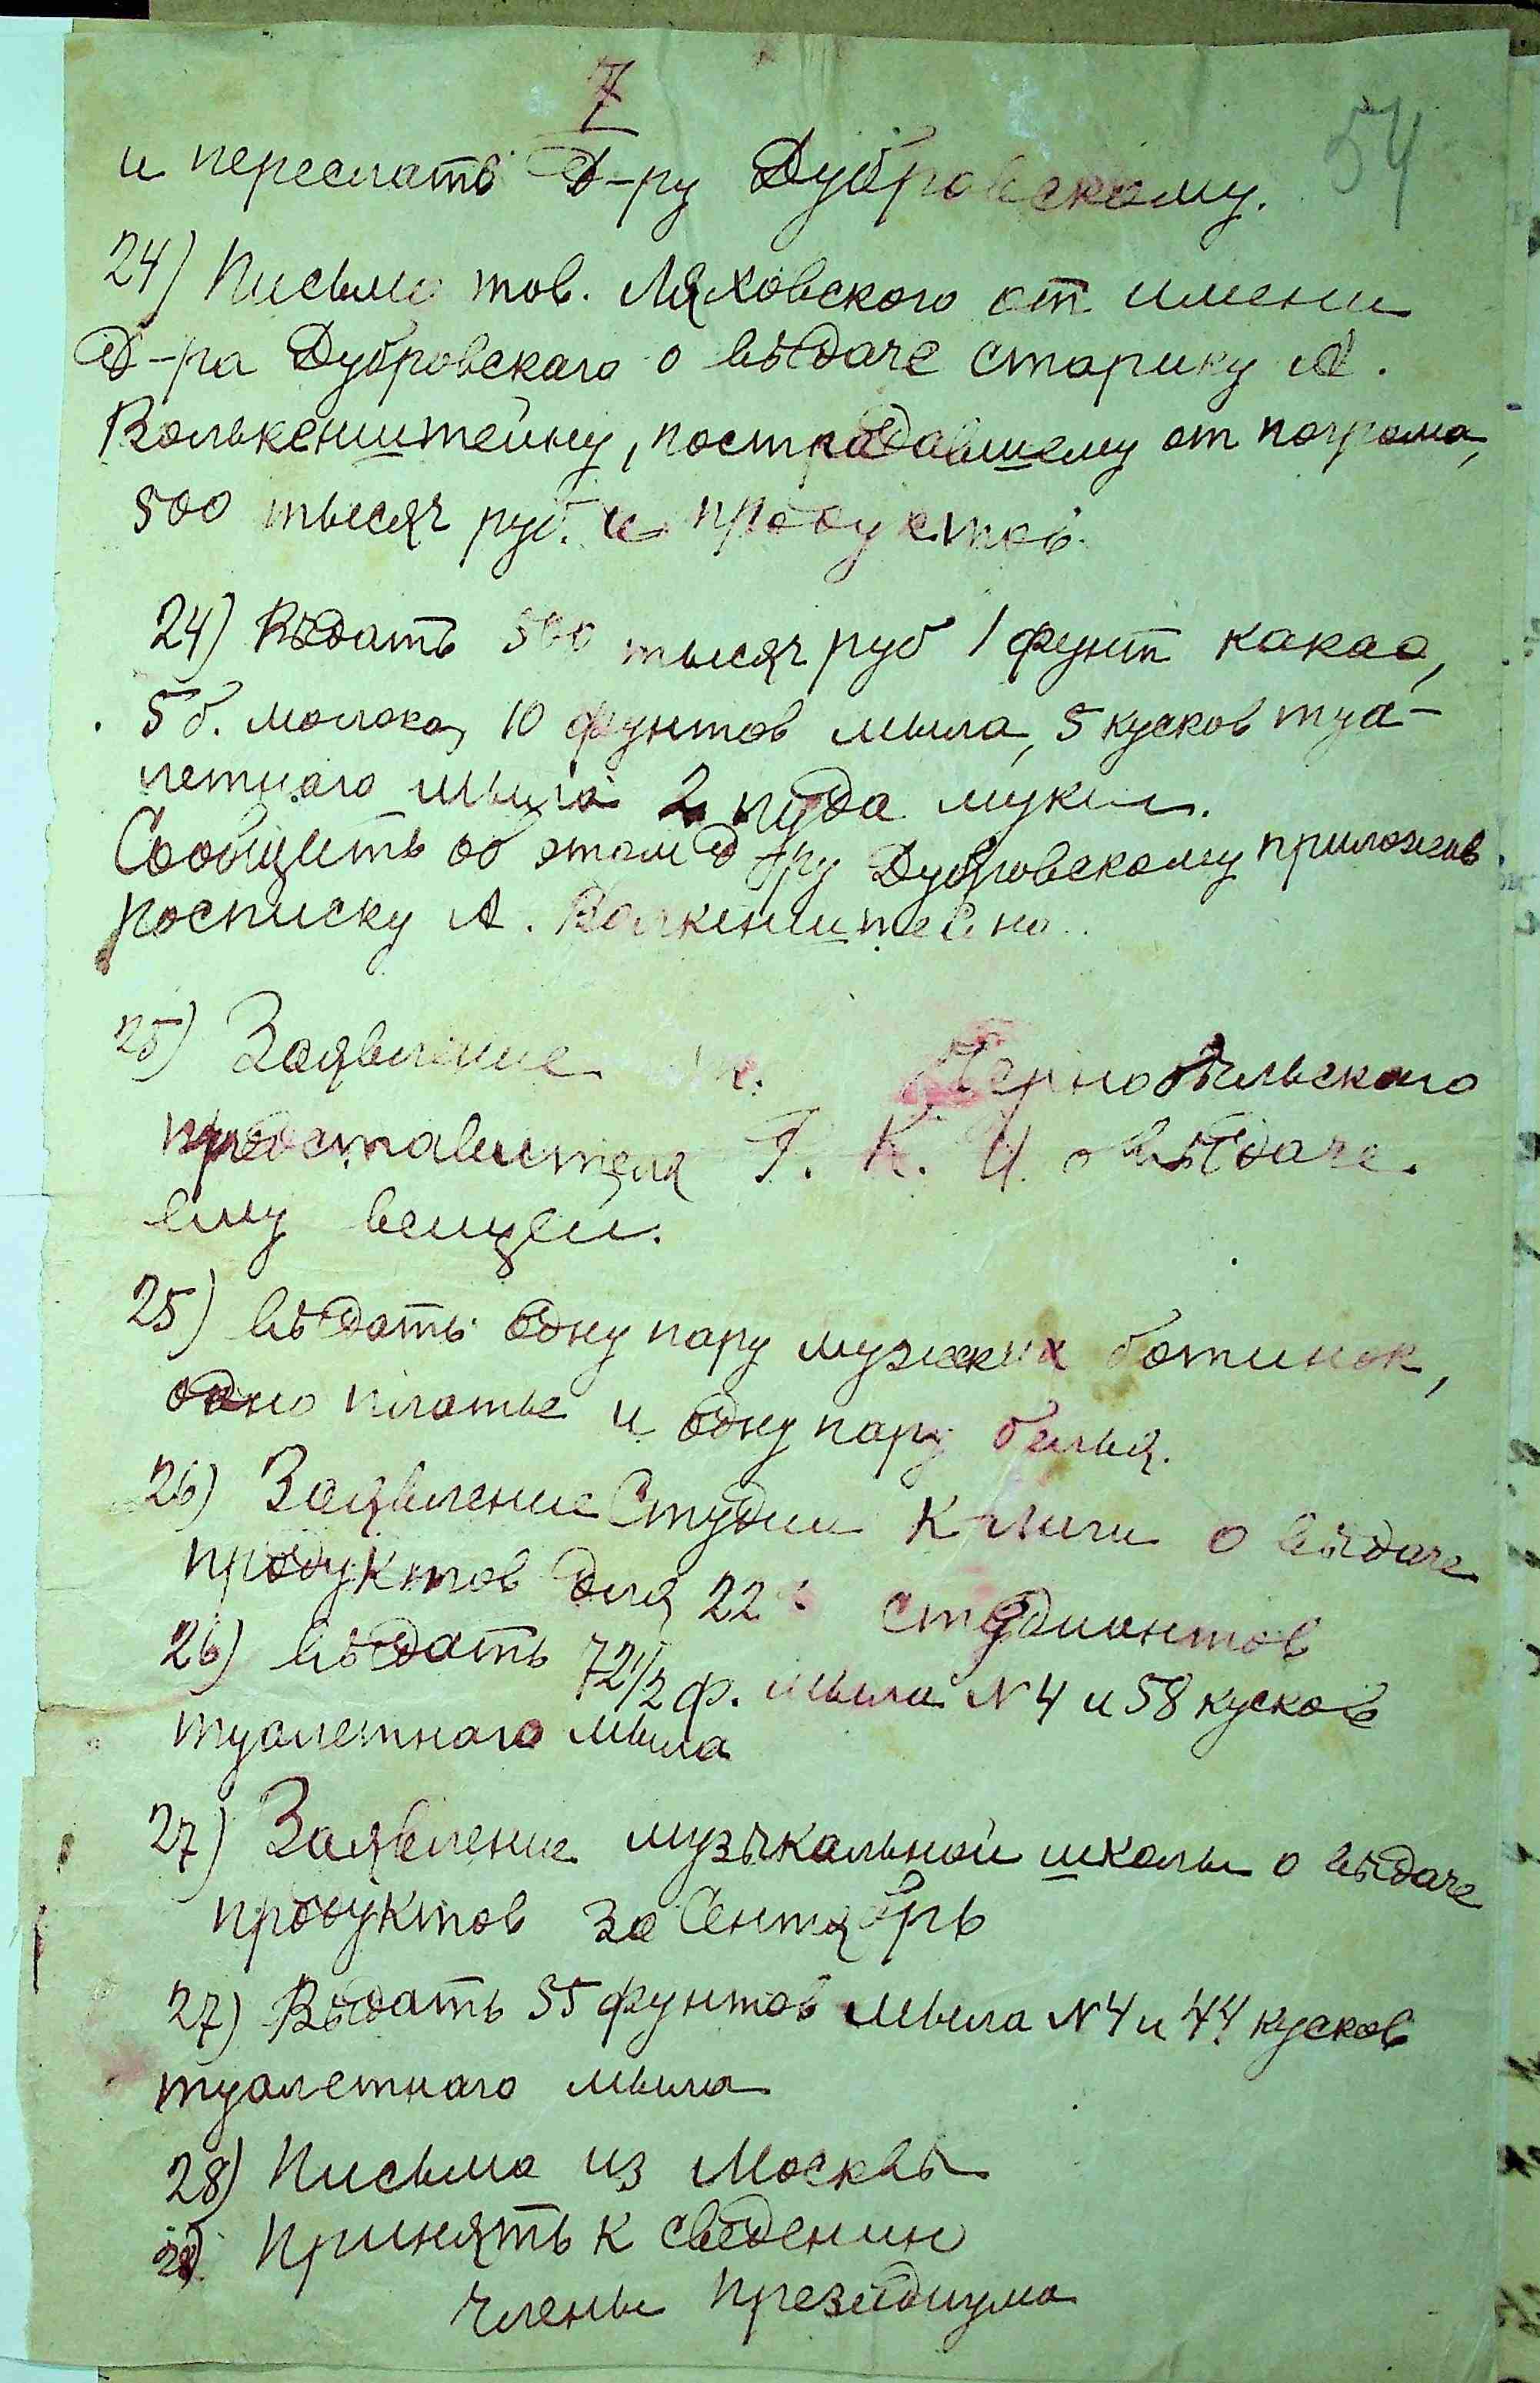 7
54
и переслать Д-ру Дубровскому.
24) Письмо тов. Ляховского от имени
Д-ра Дубровскаго о выдаче старику А.
Волькенштейну, пострадавшему от погрома,
500 тысяч руб. и продуктов.
24) Выдать 500 тысяч руб 1 фунт какао,
5 б. молока, 10 фунтов мыла, 5 кусков туа-
летнаго мыла 2 пуда муки.
Сообщить об этом Д-ру Дубровскому приложив
росписку А. Волкенштейна.
25) Заявление Чернобыльского
представителя Г. К. И. о выдаче
ему вещей.
25) выдать одну пару мужских ботинок,
одно платье и одну пару белья.
26) Заявление Студии К Лиги о выдаче
продуктов для 22 студиантов
26) выдать 72 1/2 ф. мыла N 4 и 58 кусков
туалетнаго мыла
27) Заявление музыкальной школы о выдаче
продуктов за Сентябрь
27) Выдать 55 фунтов мыла N 4 и 44 кусков
туалетнаго мыла
28) Письма из Москвы
28) Принять к сведению
Члены Президиума